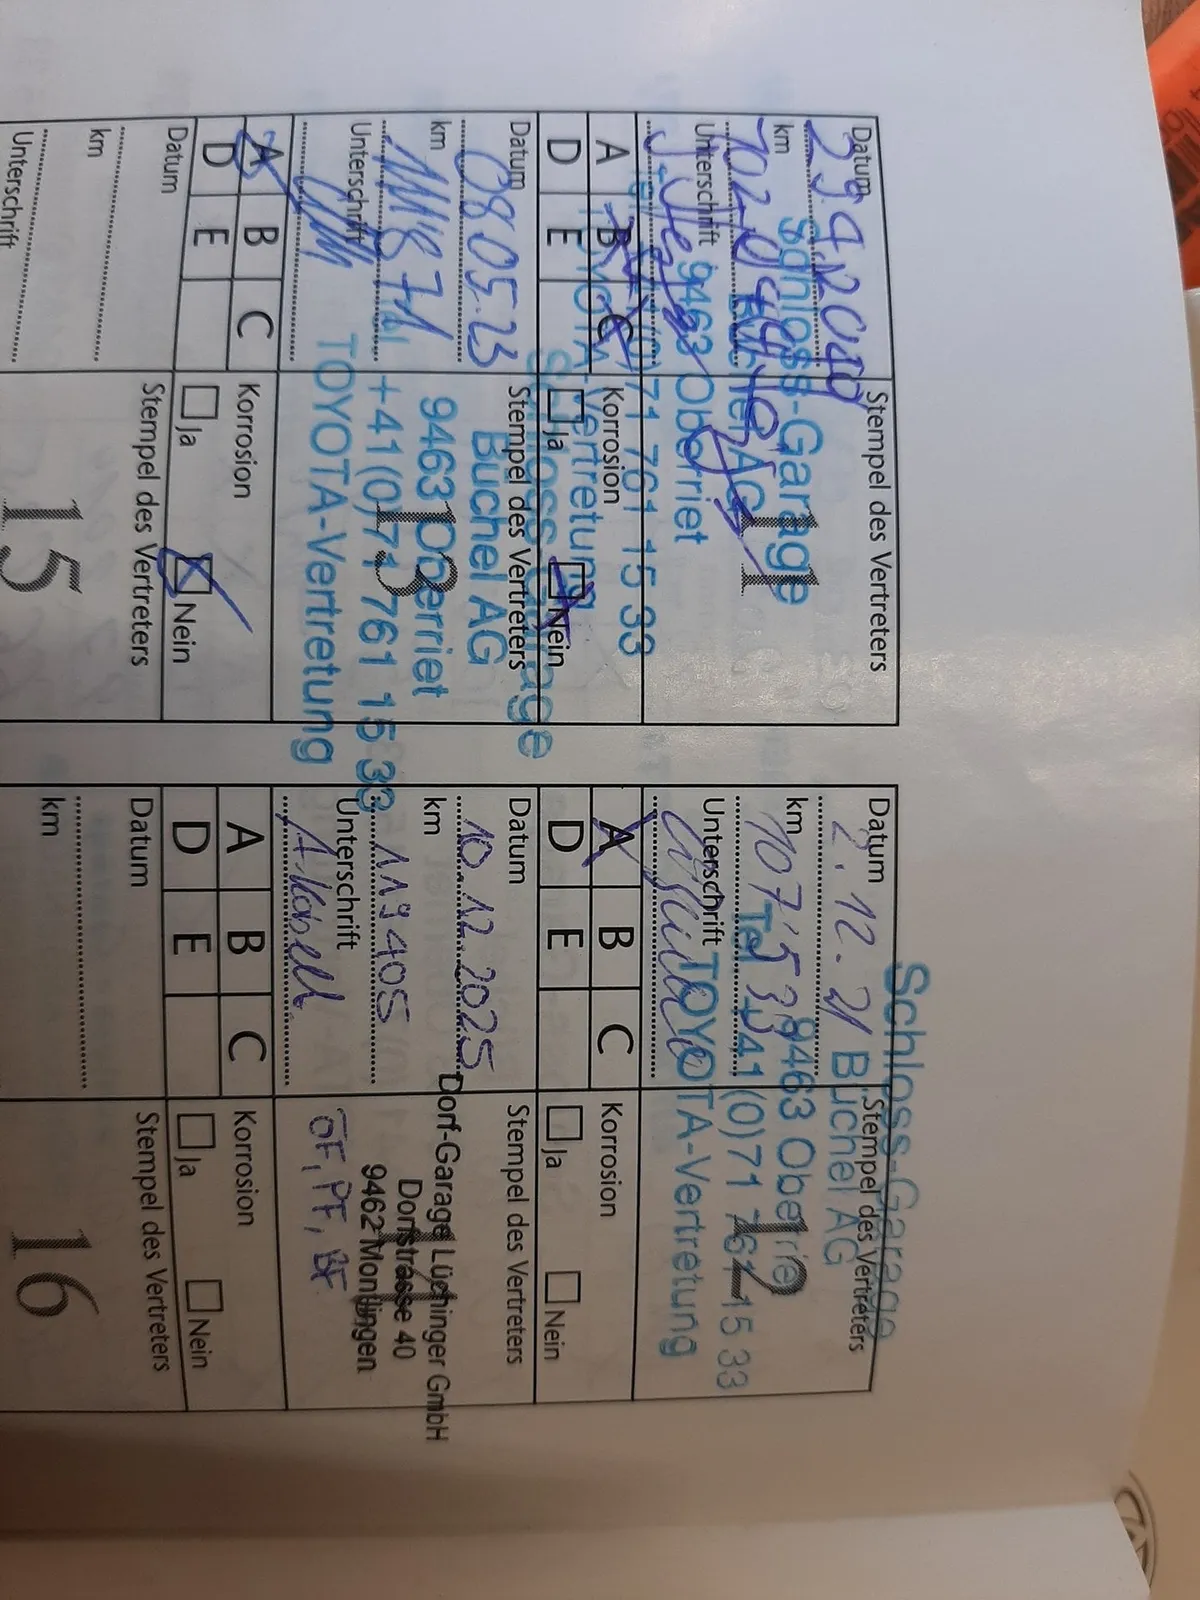 Datum
Stempel des Vertreters
Schloss-Garage
km
Büchel AG
11
Unterschrift
9463 Oberriet
Tel. +41 (0)71 761 15 33
TOYOTA-Vertretung
A B C
Korrosion
D E
Ja
Nein
Datum
Stempel des Vertreters
08.05.23
Schloss-Garage
Büchel AG
km
9463 Oberriet
13
+41 (0)71 761 15 33
Unterschrift
TOYOTA-Vertretung
A B C
Korrosion
D E
Ja
Nein
Datum
Stempel des Vertreters
km
15
Unterschrift
Schloss-Garage
Datum
Stempel des Vertreters
2.12.21
Büchel AG
km
9463 Oberriet
12
107'533
Tel. +41 (0)71 761 15 33
Unterschrift
TOYOTA-Vertretung
A B C
Korrosion
D E
Ja
Nein
Datum
Stempel des Vertreters
10.12.2025
Dorf-Garage Lüchinger GmbH
km
Dorfstrasse 40
119405
9462 Montlingen
Unterschrift
ÖF, PF, BF
A B C
Korrosion
D E
Ja
Nein
Datum
Stempel des Vertreters
km
16